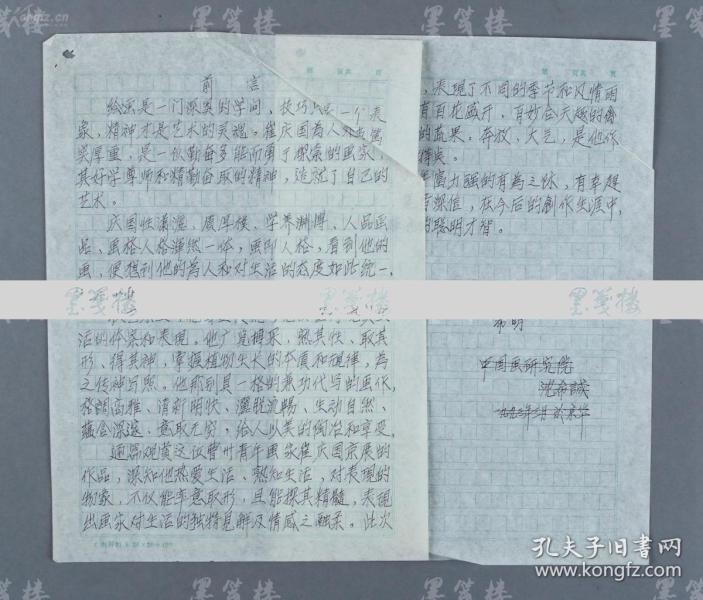 前言
绘画是一门深奥的学问，技巧只是一个表
象，精神才是艺术的灵魂。崔庆国为人朴
实厚重，是一似勤奋多能而勇于探索的画家，
其好学尊师和精勤奋取的精神，造就了自己的
艺术。
庆国性潇洒、质厚朴、学养渊博、人品画
品、画格人格浑然一体，画即人格，看到他的
画，便想到他的为人和对生活的态度如此统一，
活的体察和表现。他广览博采，熟其性、取其
形、得其神，掌握植物生长的本质和规律，为
之传神写照。他那别具一格的兼功代写的画作，
格调高雅、清新明快、洒脱流畅、生动自然、
蕴含深邃、意取无穷，给人以美的陶冶和享受。
通篇观赏这议曹州青年画家崔庆国京展的
作品，深知他热爱生活、熟知生活，对表现的
物象，不仅能率意取形，且能探其精髓，表现
出画家对生活的独特见解及情感之融柔。此次
，表现了不同的季节和风情雨
有百花盛开，百妙
的蔬果。奔放、大气，是他作
年富力强的有为之休，有幸趕
在今后的創作生涯中，
的聪明才智。
希明
中国画研究院
沈希誠
於京华
墨笺楼
孔夫子旧书网
www.kongfz.com